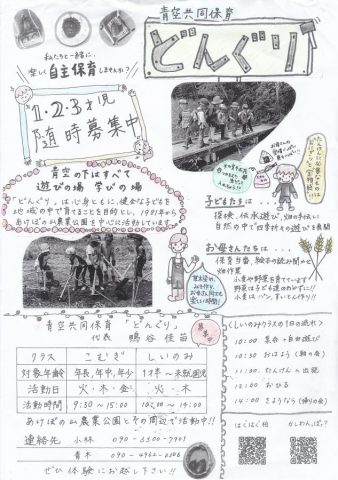 青空共同保育
どんぐり
私たちと一緒に、
楽しく自主保育しませんか？
1・2・3才児
随時募集中
青空の下はすべて
遊びの場 学びの場
「どんぐり」は心身ともに、健全な子どもを
地域の中で育てることを目的とし、1981年から
あけぼの山農業公園を中心に活動しています。
子どもたちは...
探検、伝承遊び、畑の手伝い
自然の中で四季折々の遊びを展開
お母さんたちは...
保育当番、絵本の読み聞かせ
畑作業
小麦や野菜を育てています
青空共同保育「どんぐり」
代表 鴨谷 佳苗
クラス こむぎ しいのみ
対象年齢 年長、年中、年少 1才半～未就園児
活動日 火・木・金 火・木
活動時間 9:30～15:00 10:00～14:00
あけぼの山農業公園とその周辺で活動中!!
連絡先 小林
青木
ぜひ体験にお越し下さい!!
<しいのみクラスの1日の流れ>
10:00 集合→自由遊び
10:30 おはよう(朝の会)
11:00 たんけんへ出発
12:00 おひる
14:00 さようなら(帰りの会)
はぐはぐ柏